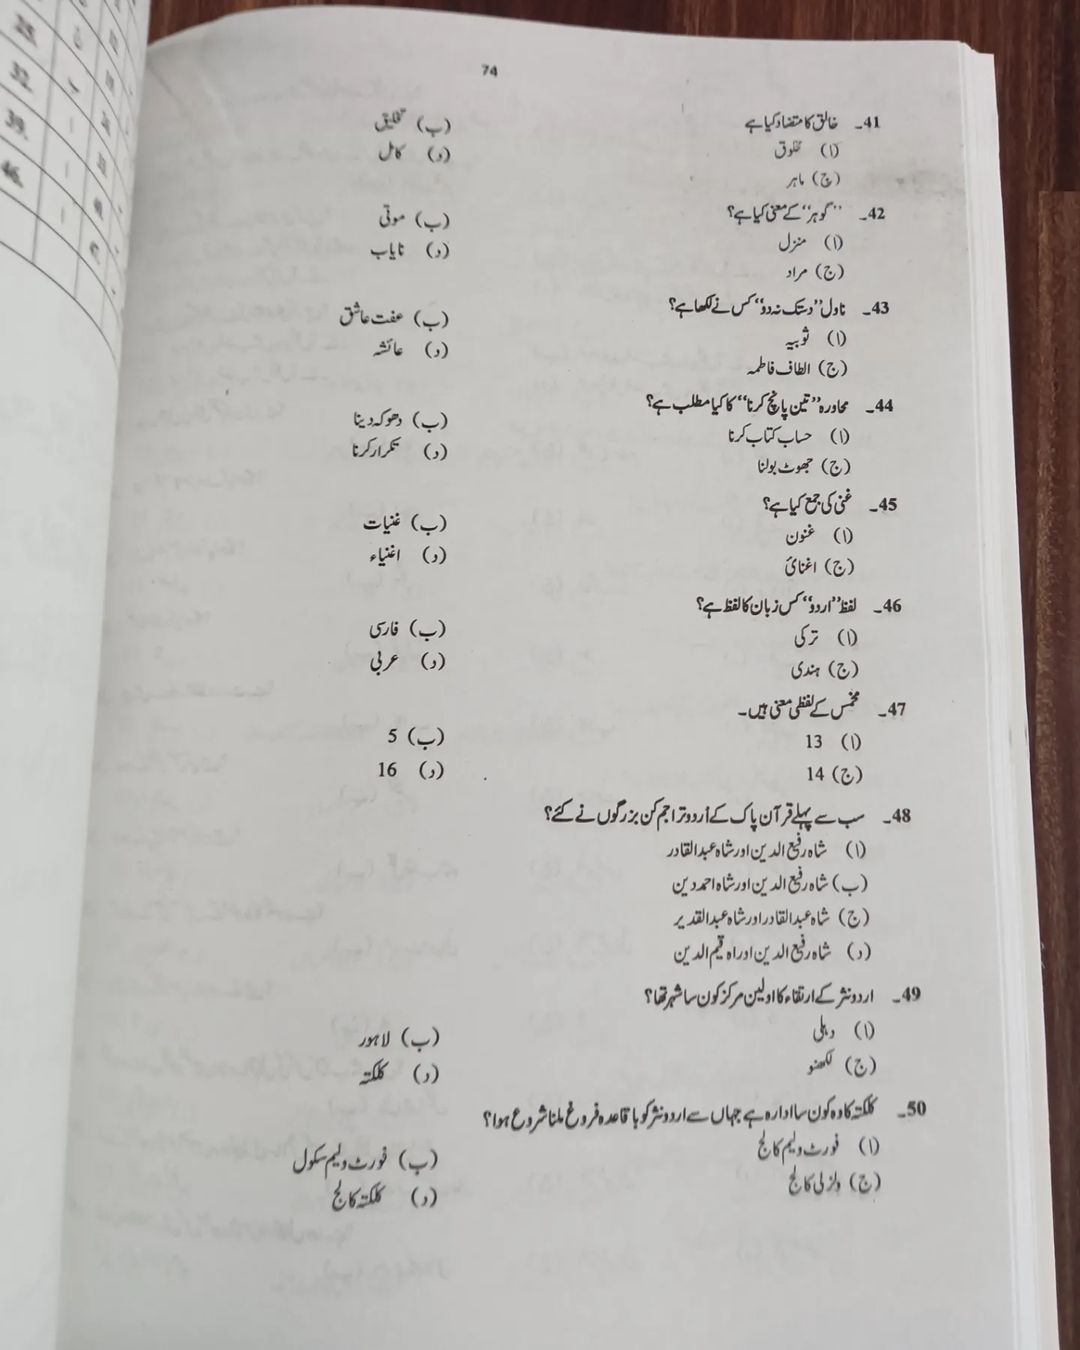 25.
32.
39.
46.
74
41۔ خالق کا متضاد کیا ہے
(ا) مخلوق (ب) تخلیق
(ج) ماہر (د) کامل
42۔ ”گوہر“ کے معنی کیا ہے؟
(ا) منزل (ب) موتی
(ج) مراد (د) نایاب
43۔ ناول ”دستک نہ دو“ کس نے لکھا ہے؟
(ا) ثوبیہ (ب) عفت عاشق
(ج) الطاف فاطمہ (د) عائشہ
44۔ محاورہ ”تین پانچ کرنا“ کا کیا مطلب ہے؟
(ا) حساب کتاب کرنا (ب) دھوکہ دینا
(ج) جھوٹ بولنا (د) تکرار کرنا
45۔ غنی کی جمع کیا ہے؟
(ا) غنون (ب) غنیات
(ج) اغنائ (د) اغنیاء
46۔ لفظ ”اردو“ کس زبان کا لفظ ہے؟
(ا) ترکی (ب) فارسی
(ج) ہندی (د) عربی
47۔ مخمس کے لفظی معنی ہیں۔
(ا) 13 (ب) 5
(ج) 14 (د) 16
48۔ سب سے پہلے قرآن پاک کے اُردو تراجم کن بزرگوں نے کئے؟
(ا) شاہ رفیع الدین اور شاہ عبدالقادر
(ب) شاہ رفیع الدین اور شاہ احمد دین
(ج) شاہ عبدالقادر اور شاہ عبدالقدیر
(د) شاہ رفیع الدین اور اہ قیم الدین
49۔ اردو نثر کے ارتقاء کا اولین مرکز کون سا شہر تھا؟
(ا) دہلی (ب) لاہور
(ج) لکھنو (د) کلکتہ
50۔ کلکتہ کا وہ کون سا ادارہ ہے جہاں سے اردو نثر کو باقاعدہ فروغ ملنا شروع ہوا؟
(ا) فورٹ ولیم کالج (ب) فورٹ ولیم سکول
(ج) ولزلی کالج (د) کلکتہ کالج